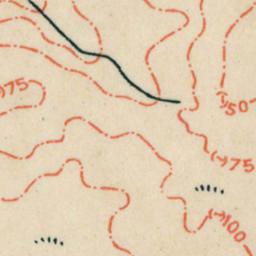 75
50
(-)75
(-)100